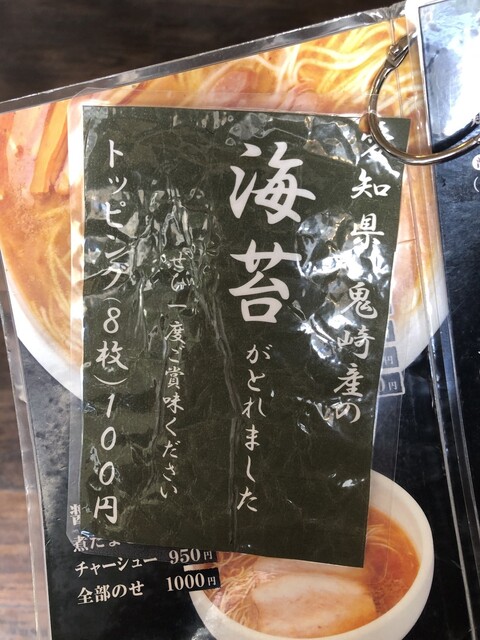 愛知県 鬼崎産の
海苔がとれました
ぜひ一度ご賞味ください
トッピング(8枚)100円
煮たま
チャーシュー 950円
全部のせ 1000円